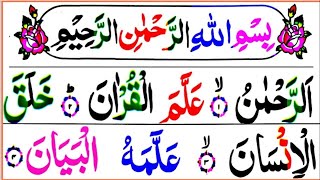 بِسْمِ اللهِ الرَّحْمٰنِ الرَّحِيْمِ
اَلرَّحْمٰنُ ۙ﴿۱﴾ عَلَّمَ الْقُرْاٰنَ ؕ﴿۲﴾ خَلَقَ
الْاِنْسَانَ ۙ﴿۳﴾ عَلَّمَهُ الْبَيَانَ ﴿۴﴾